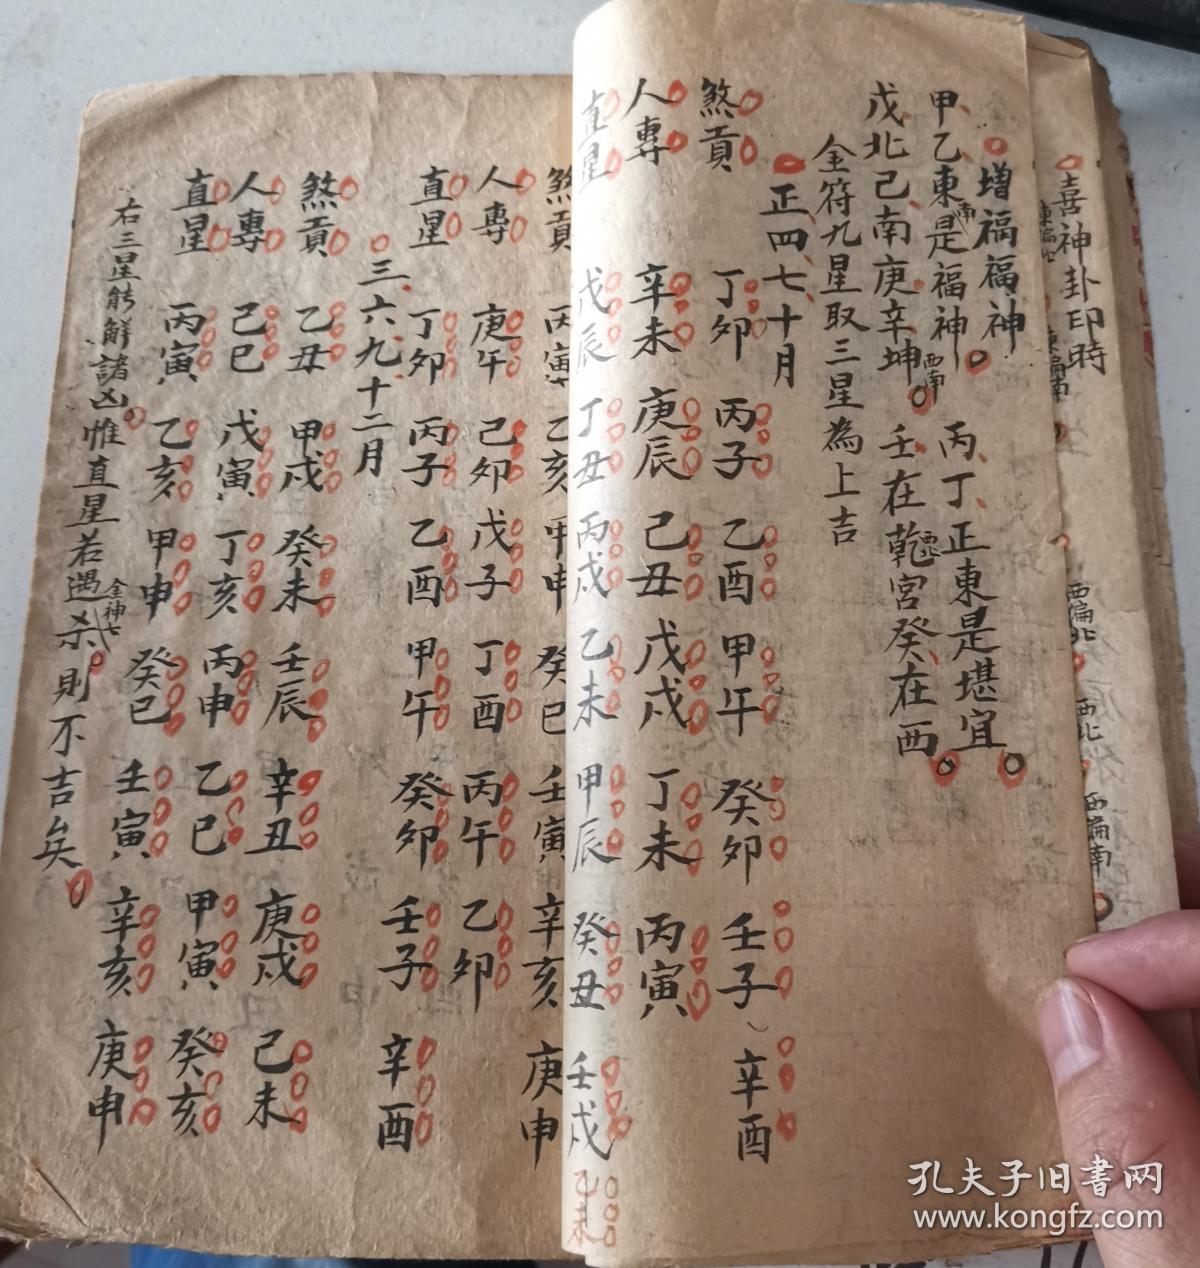 喜神卦印時
西偏北
西北
西偏南
增福福神
甲乙東南是福神 丙丁正東是堪宜
戊北己南庚辛坤西南 壬在乾西北宮癸在西
金符九星取三星為上吉
正四七十月
煞貢 丁卯 丙子 乙酉 甲午 癸卯 壬子 辛酉
人專 辛未 庚辰 己丑 戊戌 丁未 丙寅
直星 戊辰 丁丑 丙戌 乙未 甲辰 癸丑 壬戌 乙未
煞貢 丙寅 乙亥 甲申 癸巳 壬寅 辛亥 庚申
人專 庚午 己卯 戊子 丁酉 丙午 乙卯
直星 丁卯 丙子 乙酉 甲午 癸卯 壬子 辛酉
三六九十二月
煞貢 乙丑 甲戌 癸未 壬辰 辛丑 庚戌 己未
人專 己巳 戊寅 丁亥 丙申 乙巳 甲寅 癸亥
直星 丙寅 乙亥 甲申 癸巳 壬寅 辛亥 庚申
右三星能解諸凶惟直星若遇金神七杀則不吉矣
孔夫子旧书网
www.kongfz.com